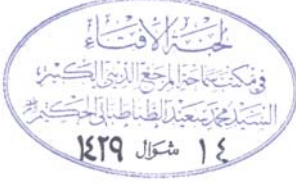 لجنة الافتاء
في مكتب سماحة المرجع الديني الكبير
السيد محمد سعيد الطباطبائي الحكيم
١٤ شوال ١٤٢٩